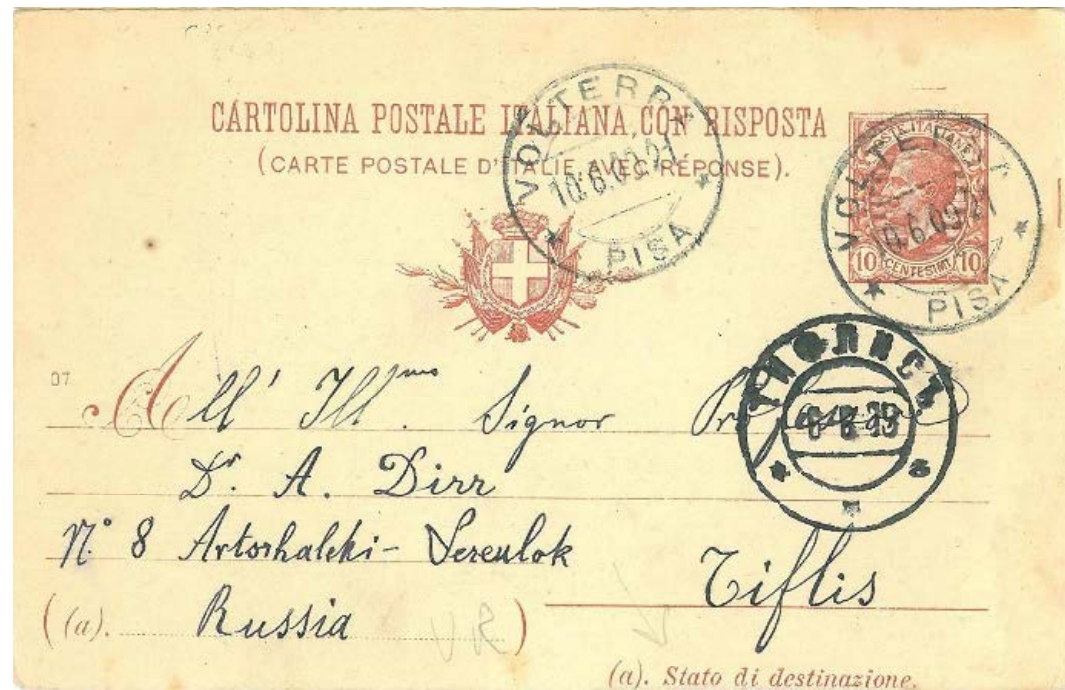 CARTOLINA POSTALE ITALIANA CON RISPOSTA
(CARTE POSTALE D'ITALIE AVEC RÉPONSE).
VOLTERRA
10.6.09.21
PISA
POSTE ITALIANE
10 CENTESIMI 10
VOLTERRA
10.6.09.21
PISA
ТИФЛИСЪ
07
All' Ill.mo Signor
Dr A. Dirr
N.° 8 Artoshaleki-Sereulok
Tiflis
(a). Russia
(a). Stato di destinazione.